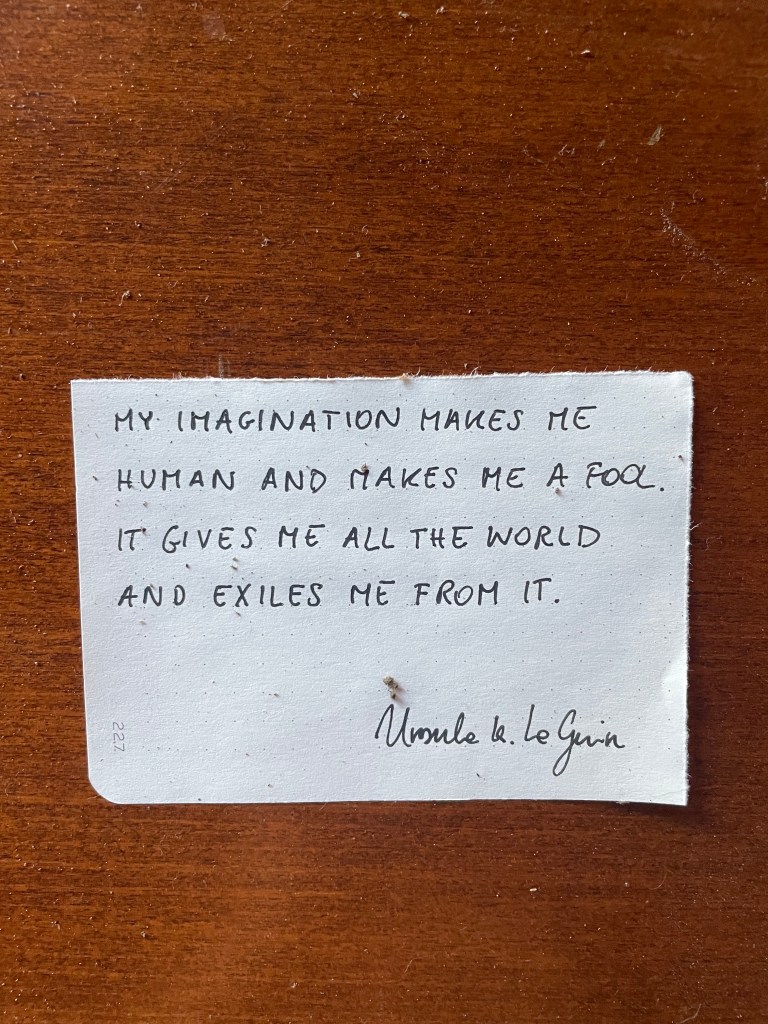 MY IMAGINATION MAKES ME
HUMAN AND MAKES ME A FOOL.
IT GIVES ME ALL THE WORLD
AND EXILES ME FROM IT.
Ursula K. Le Guin
227